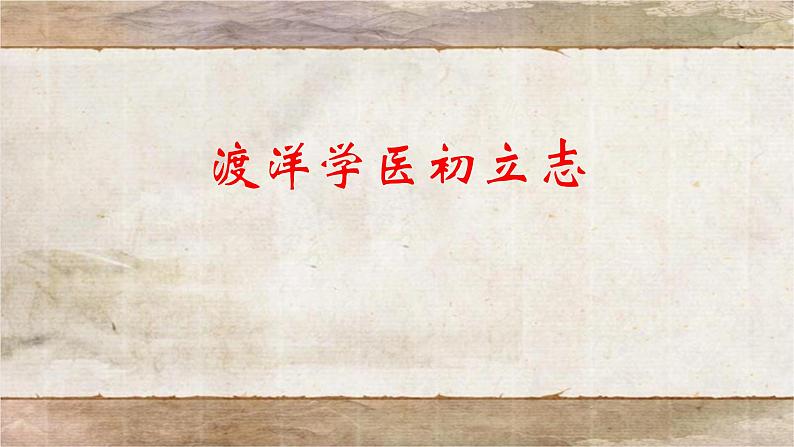 渡洋学医初立志